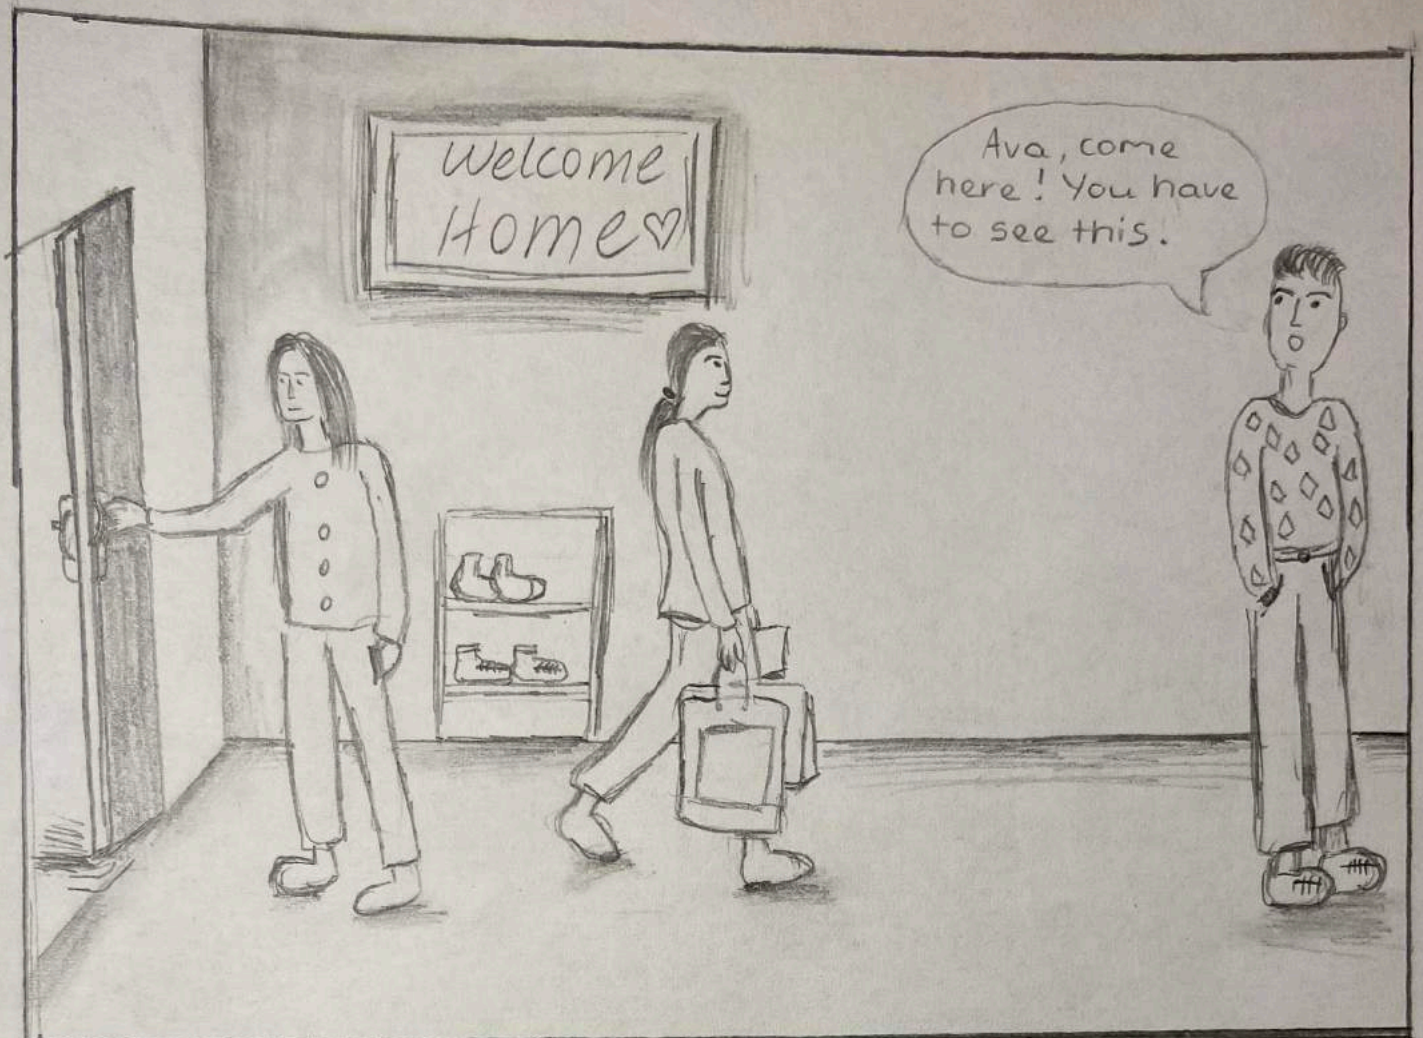 Welcome
Home♡
Ava, come
here! You have
to see this.